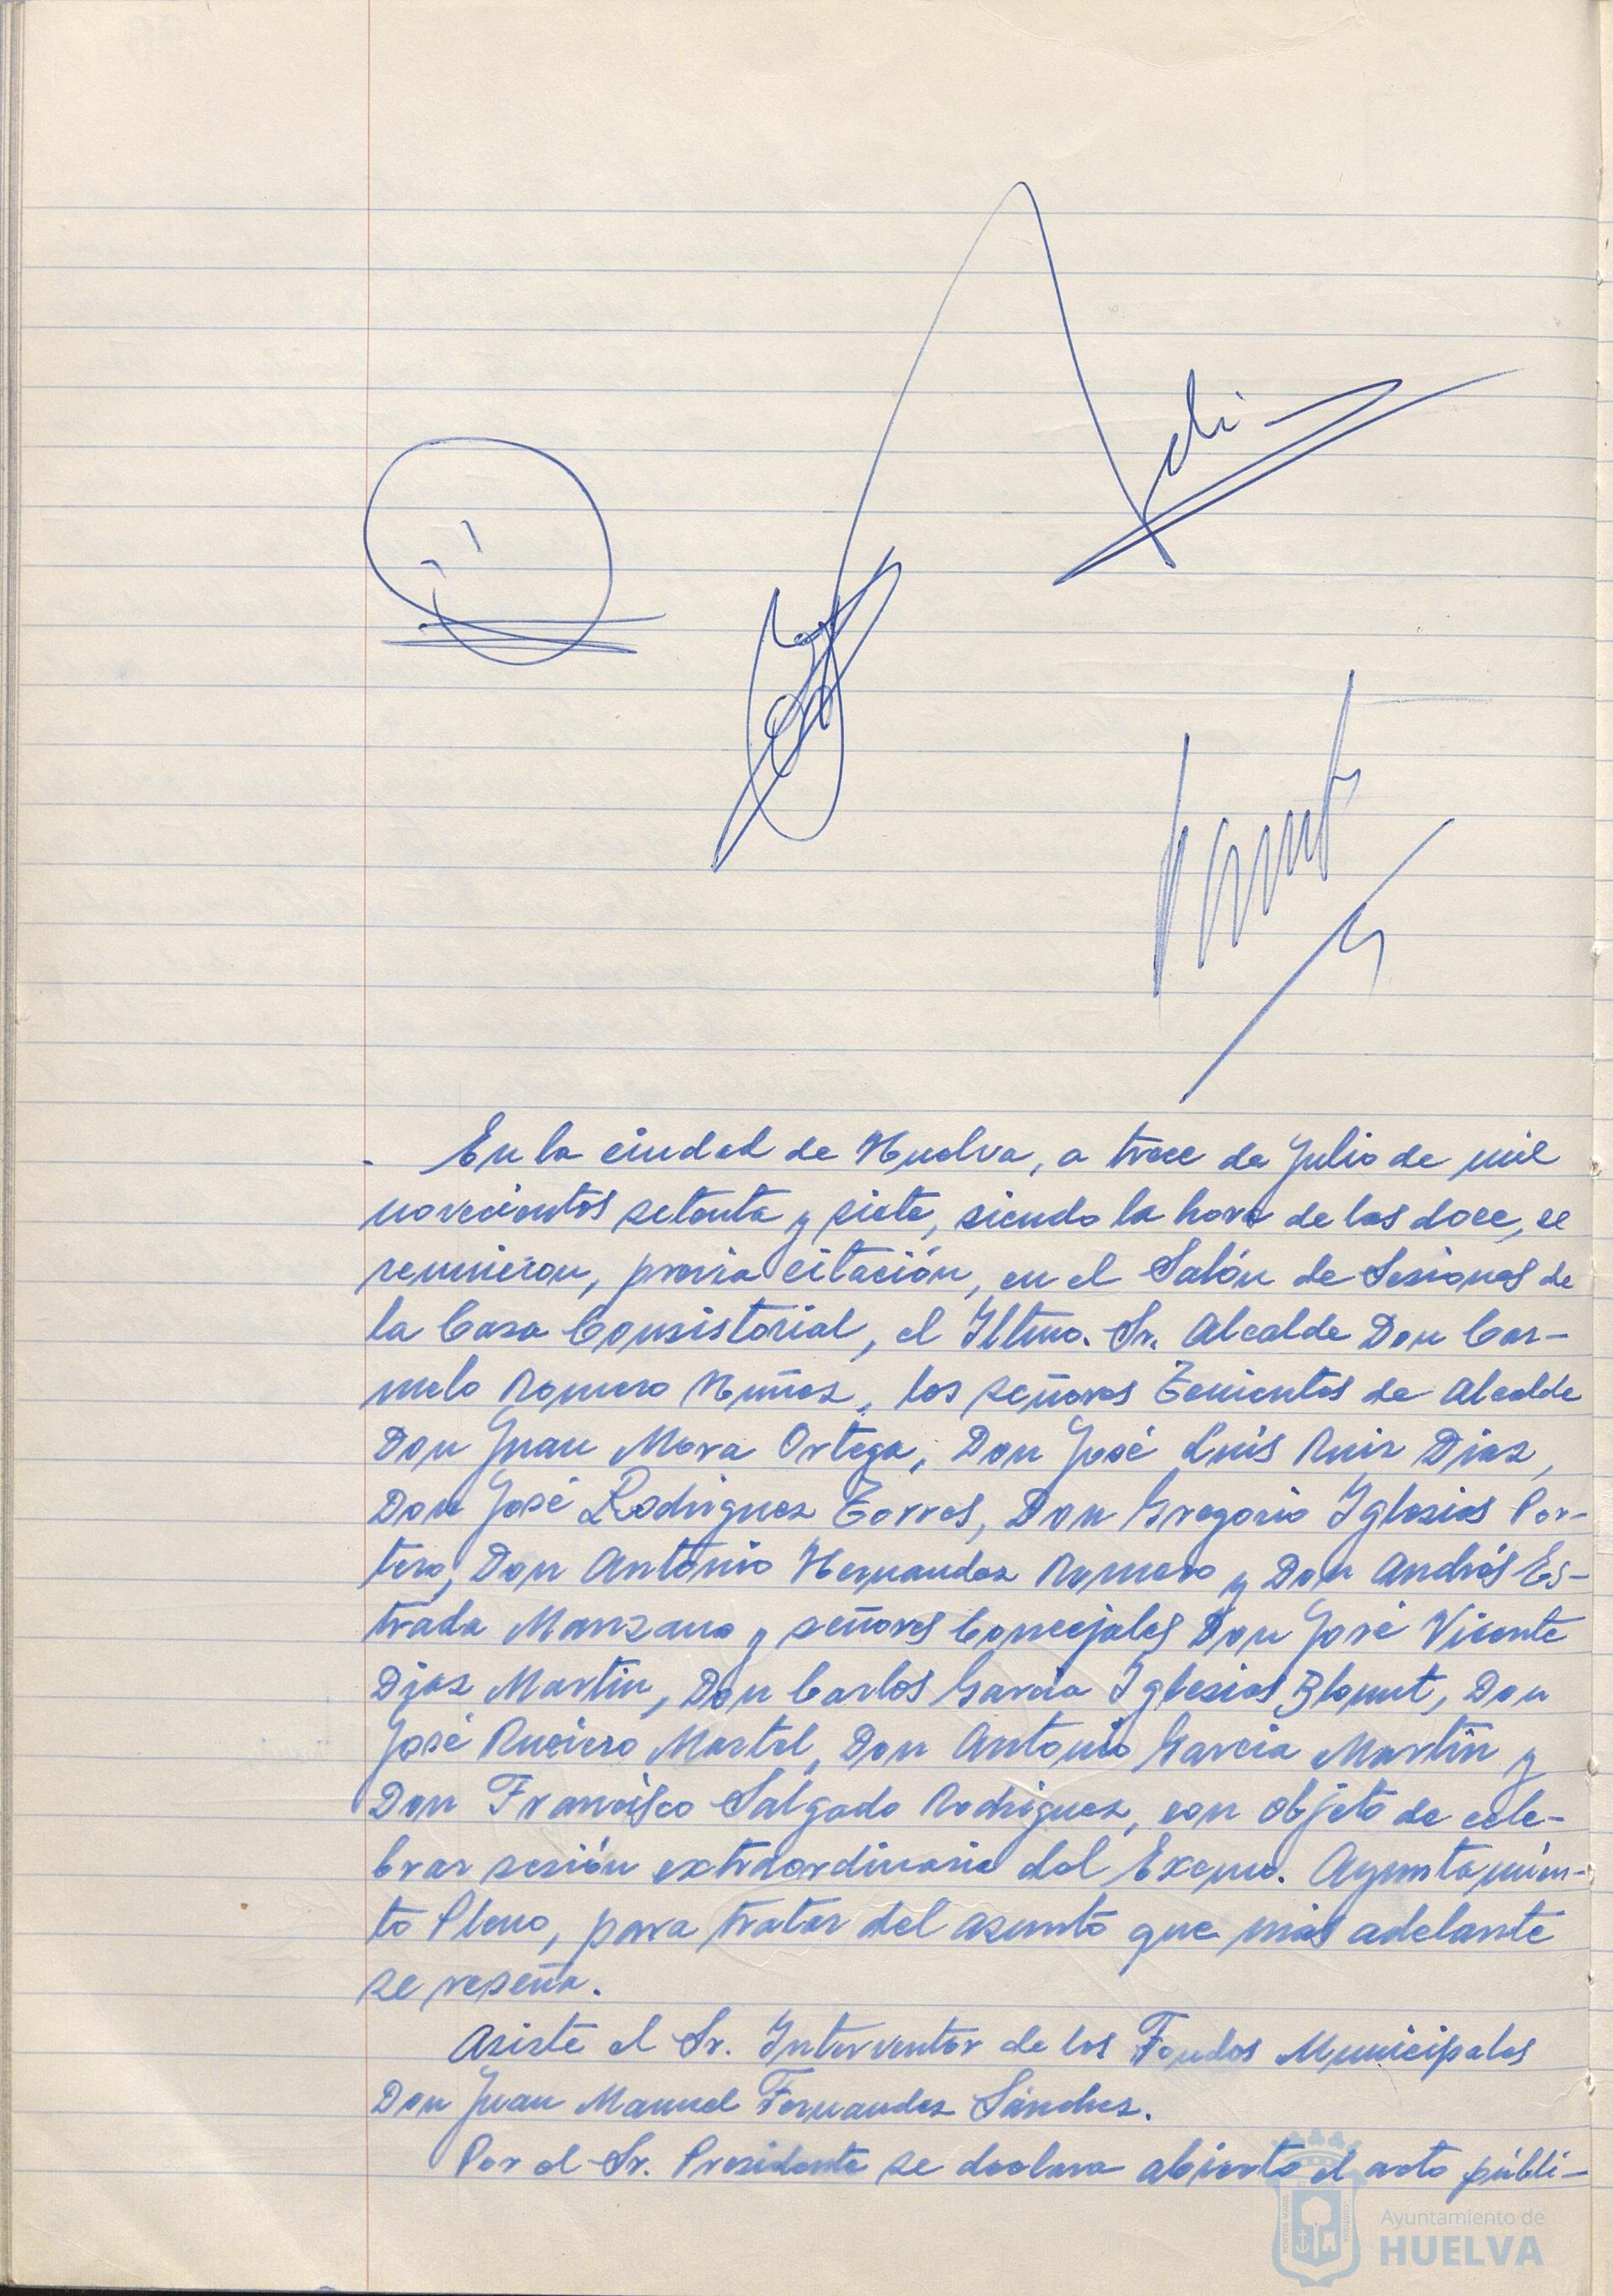 En la ciudad de Huelva, a trece de Julio de mil
novecientos setenta y siete, siendo la hora de las doce, se
reunieron, previa citación, en el Salón de Sesiones de
la Casa Consistorial, el Iltmo. Sr. Alcalde Don Car-
melo Romero Nuñez, los señores Tenientes de Alcalde
Don Juan Mora Ortega, Don José Luis Ruiz Diaz,
Don José Rodriguez Torres, Don Gregorio Iglesias Por-
tero, Don Antonio Hernandez Romero y Don Andrés Es-
trada Manzano y señores Concejales Don José Vicente
Diaz Martin, Don Carlos Garcia Iglesias Blount, Don
José Ruciero Martel, Don Antonio Garcia Martin y
Don Francisco Salgado Rodriguez, con objeto de cele-
brar sesión extraordinaria del Excmo. Ayuntamien-
to Pleno, para tratar del asunto que más adelante
se reseña.
Asiste el Sr. Interventor de los Fondos Municipales
Don Juan Manuel Fernandez Sánchez.
Por el Sr. Presidente se declara abierto el acto públi-
Ayuntamiento de
HUELVA